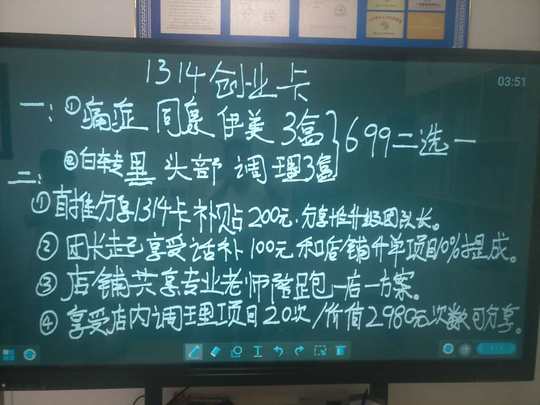 1314创业卡
03:51
一:①痛症 同泉 伊美 3盒}699二选一
②白转黑 头部 调理3盒
二:
①直推分享1314卡补贴200元.分享推升级团队长。
②团长走已享受话补100元和店铺开单项目10%提成。
③店铺共享专业老师随跑一店一方案。
④享受店内调理项目20次/价值2980元次数可分享。